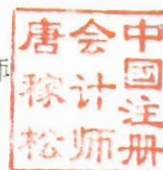 师
中国注册
会计师
唐稼松